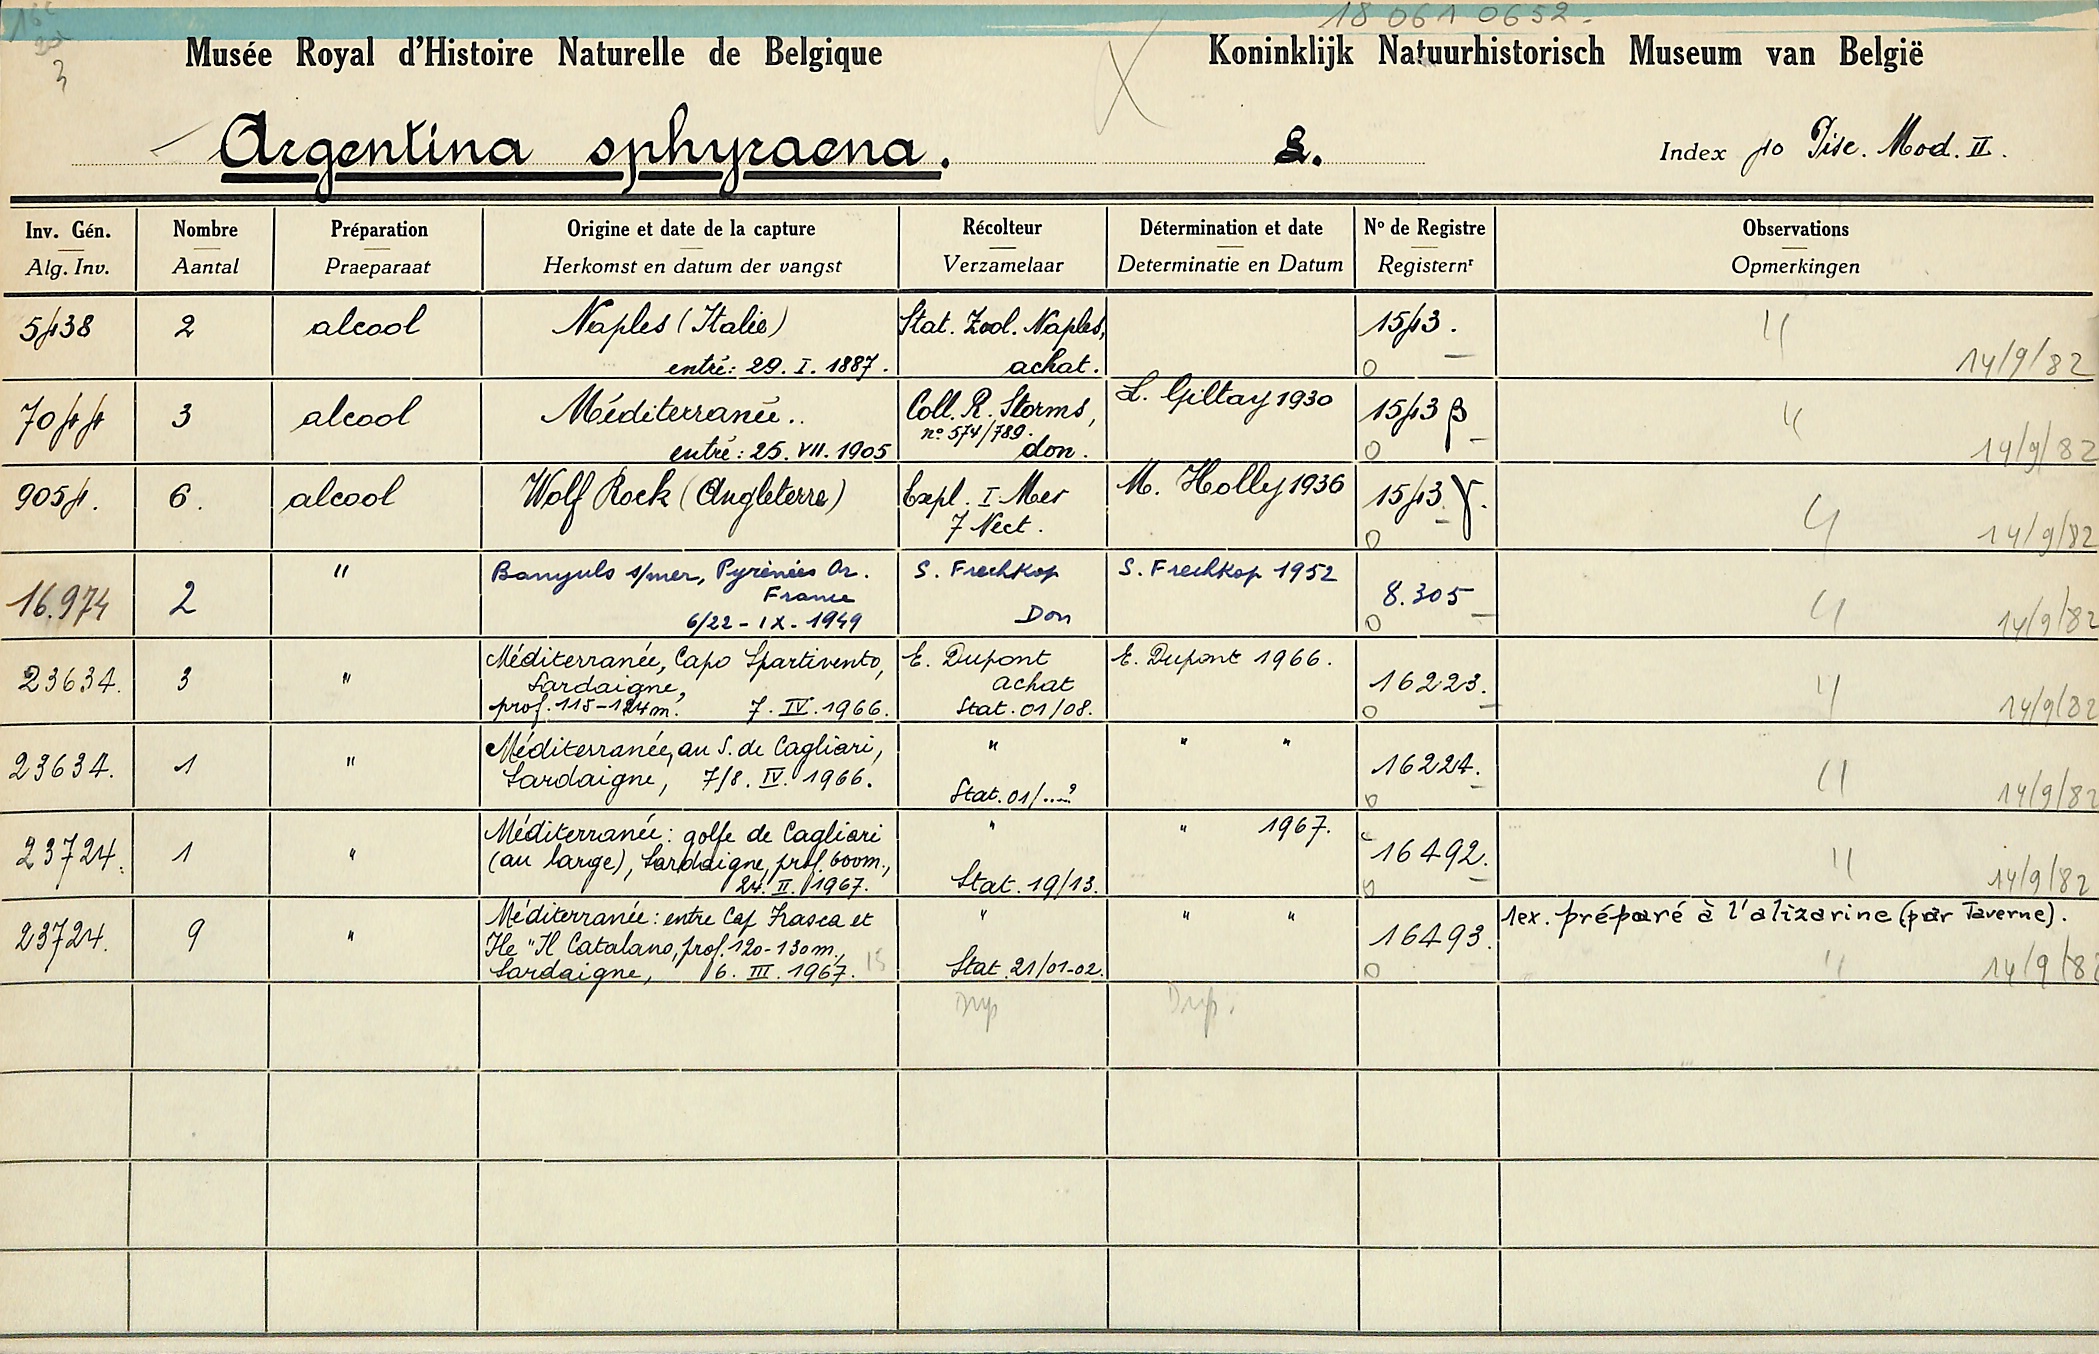 18 061 0652-
3
Musée Royal d'Histoire Naturelle de Belgique
Koninklijk Natuurhistorisch Museum van België
Argentina sphyraena. L.
Index 40 Pisc. Mod. II.
Inv. Gén. Nombre Préparation Origine et date de la capture Récolteur Détermination et date No de Registre Observations
Alg. Inv. Aantal Praeparaat Herkomst en datum der vangst Verzamelaar Determinatie en Datum Registernr Opmerkingen
5438 2 alcool Naples (Italie) Stat. Zool. Naples, 1543.
entré: 29. I. 1887. achat. 14/9/82
7044 3 alcool Méditerranée.. Coll. R. Storms, L. Giltay 1930 1543 β
no 574/789.
entré: 25. VII. 1905 don. 14/9/82
9054. 6. alcool Wolf Rock (Angleterre) Expl. I Mer M. Holly 1936 1543. γ.
7 Nect. 14/9/82
16.974 2 " Banyuls s/mer, Pyrénées Or. S. Frechkop S. Frechkop 1952 8.305
France
6/22-IX-1949 Don 14/9/82
23634. 3 " Méditerranée, Capo Spartivento, E. Dupont E. Dupont 1966. 16223.
Sardaigne, achat
prof. 115-124m. 7. IV. 1966. Stat. 01/08. 14/9/82
23634. 1 " Méditerranée, au S. de Cagliari, " " " 16224.
Sardaigne, 7/8. IV. 1966.
Stat. 01/....? 14/9/82
23724. 1 " Méditerranée: golfe de Cagliari " " 1967. 16492.
(au large), Sardaigne, prof. 600m.,
24. II. 1967. Stat. 19/13. 14/9/82
23724. 9 " Méditerranée: entre Cap Frasca et " " " 16493. 1ex. préparé à l'alizarine (par Taverne).
Ile "Il Catalano, prof. 120-130m.,
Sardaigne, 6. III. 1967. 15 Stat. 21/01-02. 14/9/82
Dup Dup.